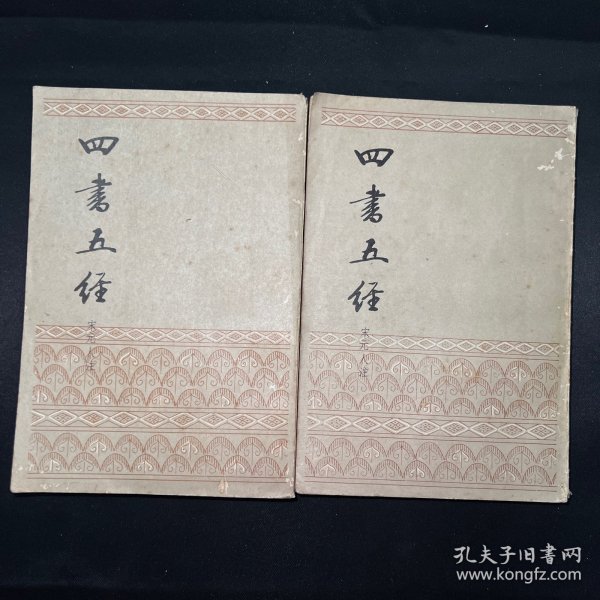 四书五经
宋元人注
四书五经
宋元人注
孔夫子旧书网
www.kongfz.com